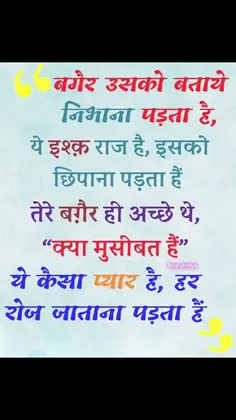 “बगैर उसको बताये
निभाना पड़ता है,
ये इश्क़ राज है, इसको
छिपाना पड़ता हैं
तेरे बग़ैर ही अच्छे थे,
“क्या मुसीबत हैं”
ये कैसा प्यार है, हर
रोज जाताना पड़ता हैं”